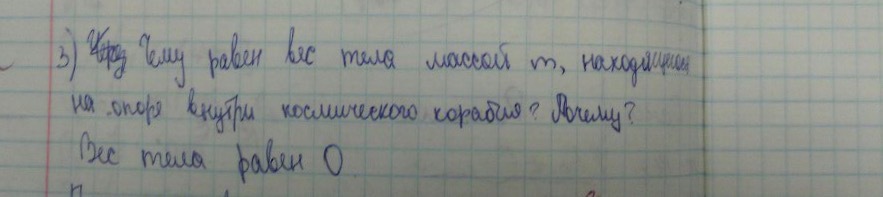 3) Чему равен вес тела массой m, находящегося
на опоре внутри космического корабля? Почему?
Вес тела равен 0